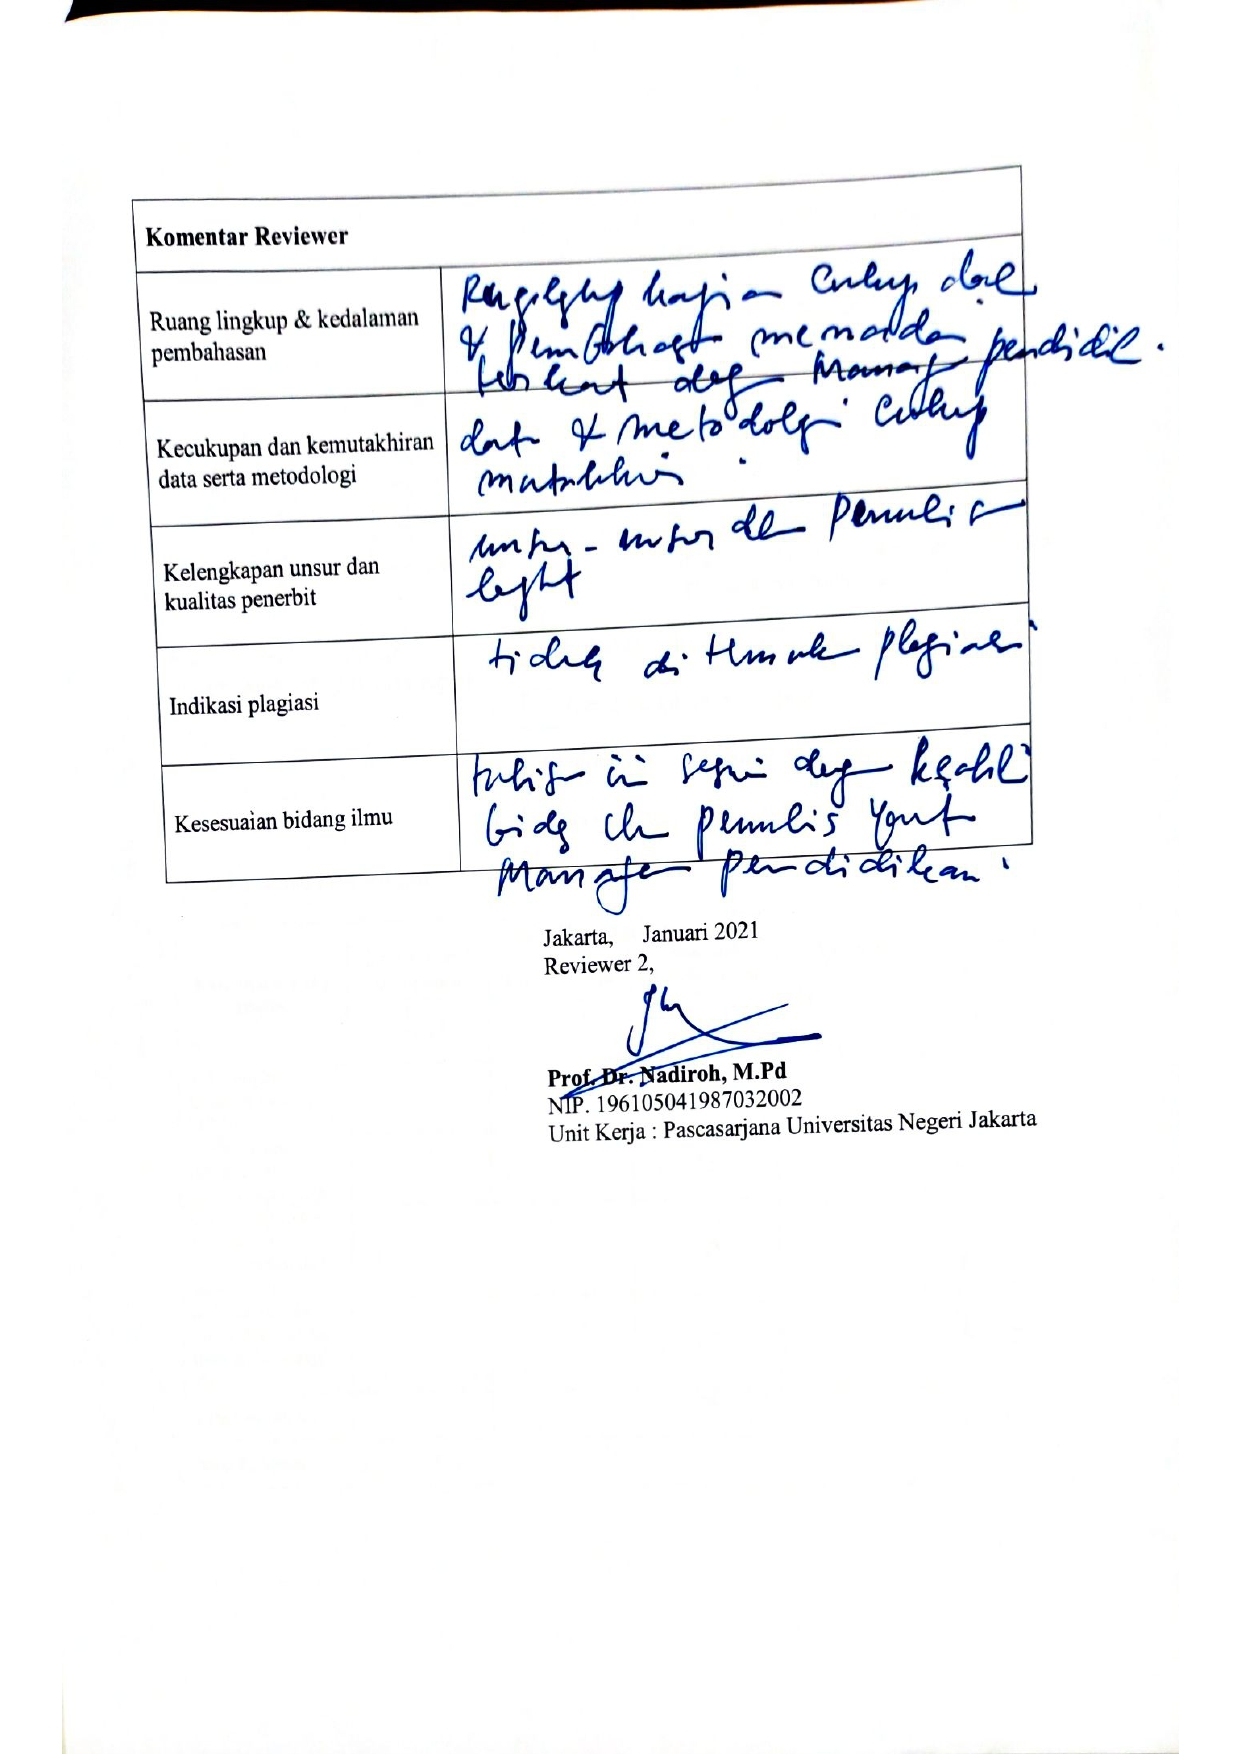 Komentar Reviewer
Ruang lingkup & kedalaman
pembahasan
kajian Cukup
& memadai
terkait deg Manaj pendidik.
Kecukupan dan kemutakhiran
data serta metodologi
data & metodologi Cukup
mutakhir.
Kelengkapan unsur dan
kualitas penerbit
unsur-unsur Penulis
Indikasi plagiasi
tidak ditemuk plagiasi
Kesesuaian bidang ilmu
tulis ini sesuai deg keahli
bidg penulis yait
Manajemen pendidikan.
Jakarta, Januari 2021
Reviewer 2,
Prof. Dr. Nadiroh, M.Pd
NIP. 196105041987032002
Unit Kerja : Pascasarjana Universitas Negeri Jakarta